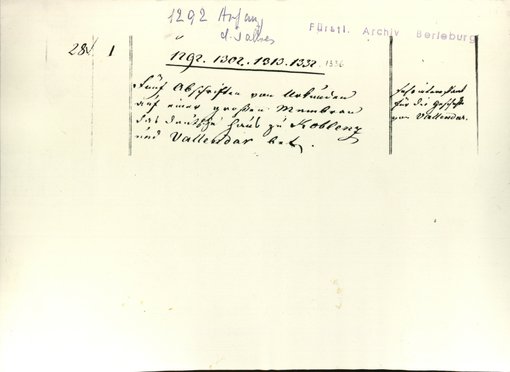 1292 Anfang
d. Jahres
Fürstl. Archiv Berleburg
28. 1
1292. 1302. 1313. 1332. 1336
Fünf Abschriften von Urkunden
auf einer großen Membran
das deutsche Haus zu Koblenz
und Vallendar betr.
Sehr interessant
für die Geschichte
von Vallendar.